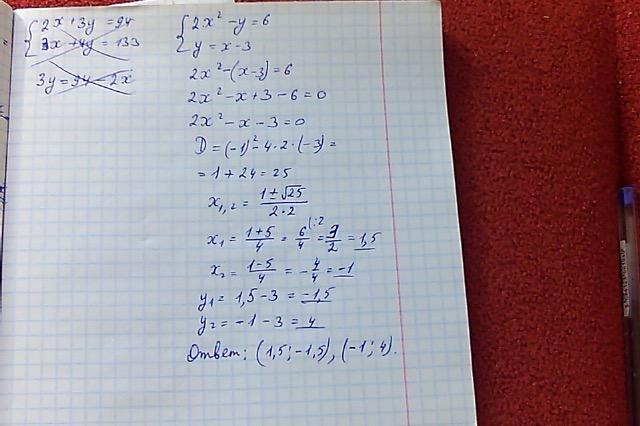 2x + 3y = 94
3x + 4y = 133
3y = 94 - 2x
2x² - y = 6
y = x - 3
2x² - (x - 3) = 6
2x² - x + 3 - 6 = 0
2x² - x - 3 = 0
D = (-1)² - 4·2·(-3) =
= 1 + 24 = 25
x₁,₂ = (1 ± √25)/(2·2)
x₁ = (1+5)/4 = 6/4 (:2 = 3/2 = 1,5
x₂ = (1-5)/4 = -4/4 = -1
y₁ = 1,5 - 3 = -1,5
y₂ = -1 - 3 = 4
Ответ: (1,5; -1,5), (-1; 4).